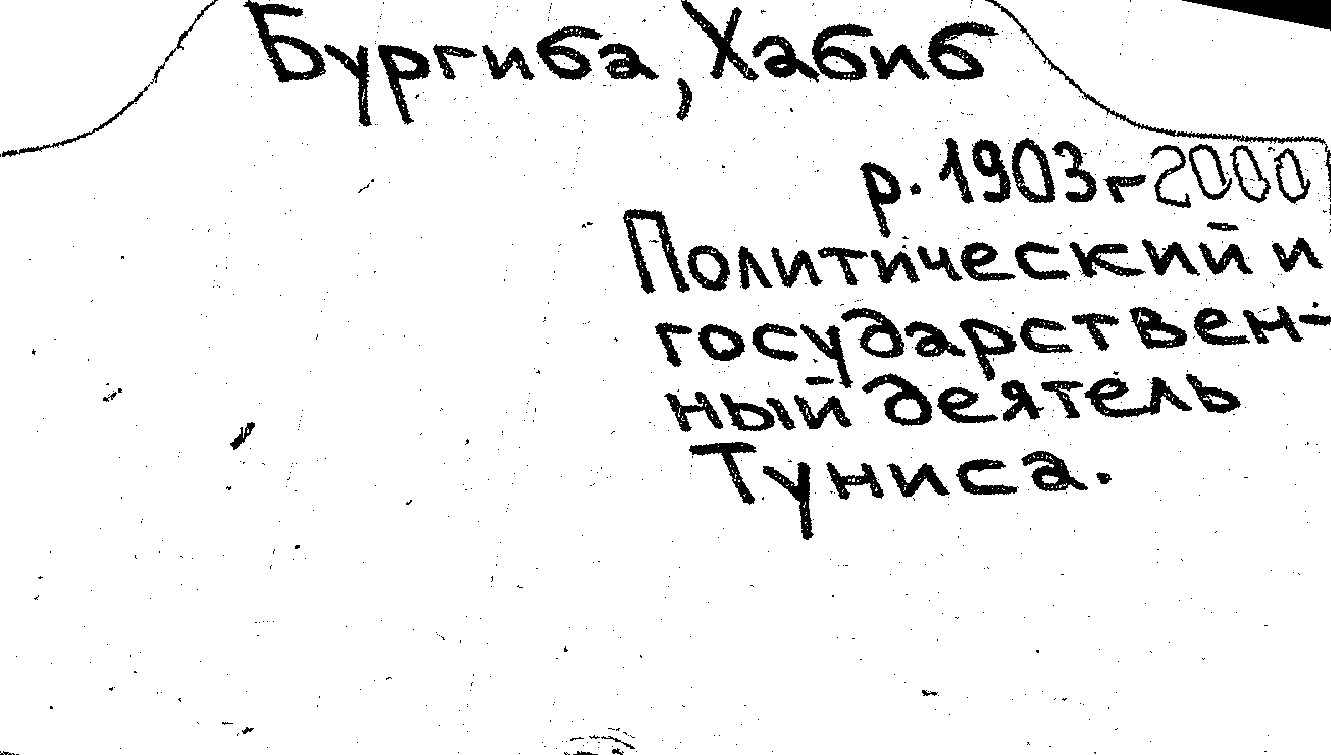 Бургиба, Хабиб
р. 1903г-2000
Политический и
государствен-
ный деятель
Туниса.